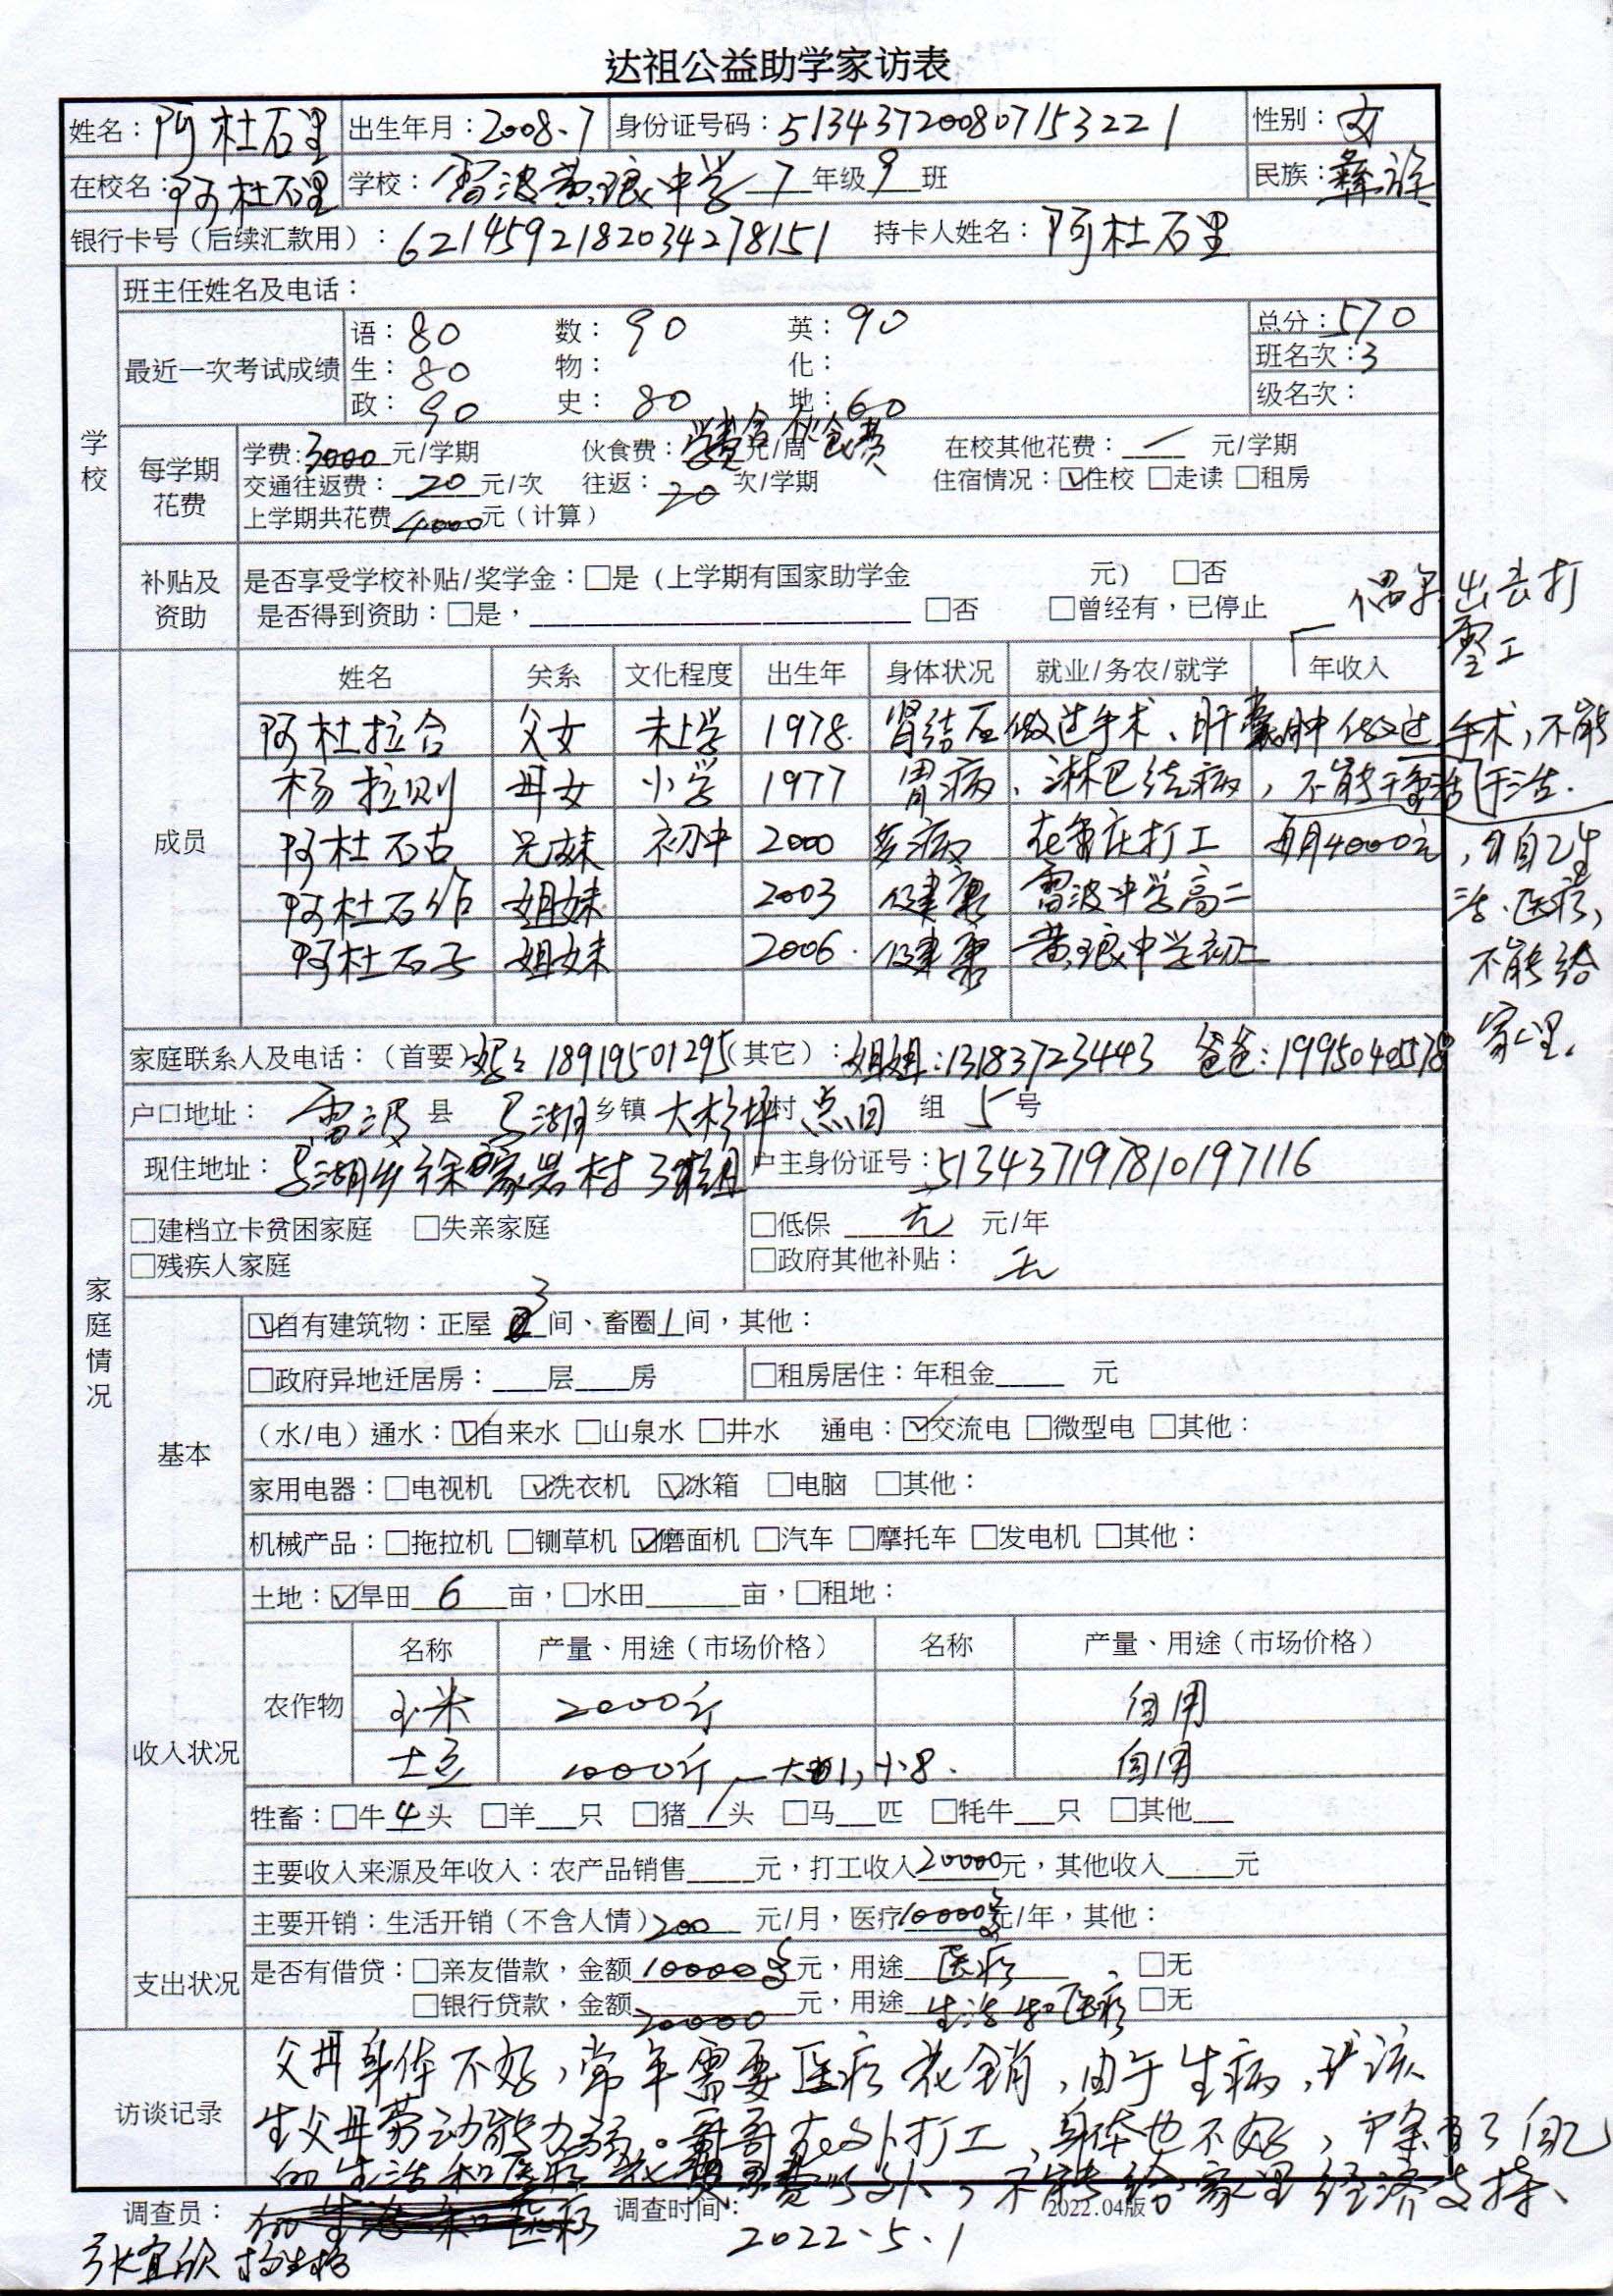 达祖公益助学家访表
姓名：阿杜石里 出生年月：2008.7 身份证号码：513437200807153221 性别：女
在校名：阿杜石里 学校：雷波黄琅中学 7 年级 9 班 民族：彝族
银行卡号（后续汇款用）：6214592182034278151 持卡人姓名：阿杜石里
学校
班主任姓名及电话：
最近一次考试成绩
语：80 数：90 英：90 总分：570
生：80 物： 化： 班名次：3
政：90 史：80 地：60 级名次：
每学期花费
学费：3000元/学期 伙食费：学费含伙食费 元/周 在校其他花费：／ 元/学期
交通往返费：20 元/次 往返：20 次/学期 住宿情况：☑住校 □走读 □租房
上学期共花费4000元（计算）
补贴及资助
是否享受学校补贴/奖学金：□是（上学期有国家助学金 元） □否
是否得到资助：□是， □否 □曾经有，已停止
偶尔出去打零工
家庭情况
成员
姓名 关系 文化程度 出生年 身体状况 就业/务农/就学 年收入
阿杜拉合 父女 未上学 1978. 肾结石做过手术、肝囊肿做过手术，不能干活.
杨拉则 母女 小学 1977 胃病、淋巴结病，不能干重活
阿杜石古 兄妹 初中 2000 多病 在重庆打工 每月4000元，自己生活、医疗，不能给家里.
阿杜石作 姐妹 2003 健康 雷波中学高二
阿杜石子 姐妹 2006. 健康 黄琅中学初二
家庭联系人及电话：（首要） 18919501295（其它）：姐姐：13183723443 爸爸：19950405578
户口地址：雷波 县 马湖 乡镇 大杉坪村 组 5 号
现住地址：马湖乡徐家岩村3组 户主身份证号：513437197810197116
□建档立卡贫困家庭 □失亲家庭 □低保 无 元/年
□残疾人家庭 □政府其他补贴： 无
基本
☑自有建筑物：正屋 3 间、畜圈 1 间，其他：
□政府异地迁居房：____层____房 □租房居住：年租金_____ 元
（水/电）通水：☑自来水 □山泉水 □井水 通电：☑交流电 □微型电 □其他：
家用电器：□电视机 ☑洗衣机 ☑冰箱 □电脑 □其他：
机械产品：□拖拉机 □铡草机 ☑磨面机 □汽车 □摩托车 □发电机 □其他：
收入状况
土地：☑旱田 6 亩，□水田_______亩，□租地：
农作物
名称 产量、用途（市场价格） 名称 产量、用途（市场价格）
玉米 2000斤 自用
土豆 1000斤 自用
大1，小8.
牲畜：□牛 4 头 □羊___只 □猪___头 □马___匹 □牦牛___只 □其他___
主要收入来源及年收入：农产品销售_____元，打工收入20000元，其他收入_____元
支出状况
主要开销：生活开销（不含人情）200 元/月，医疗10000多元/年，其他：
是否有借贷：□亲友借款，金额10000多元，用途 医疗 □无
□银行贷款，金额20000元，用途 生活和医疗 □无
访谈记录
父母身体不好，常年需要医疗花销，由于生病，该
生父母劳动能力弱。哥哥在外打工，身体也不好，除了自己
的生活和医疗花费以外，不能给家里经济支持、
调查员： 调查时间： 2022.04版
张宜欣 2022.5.1